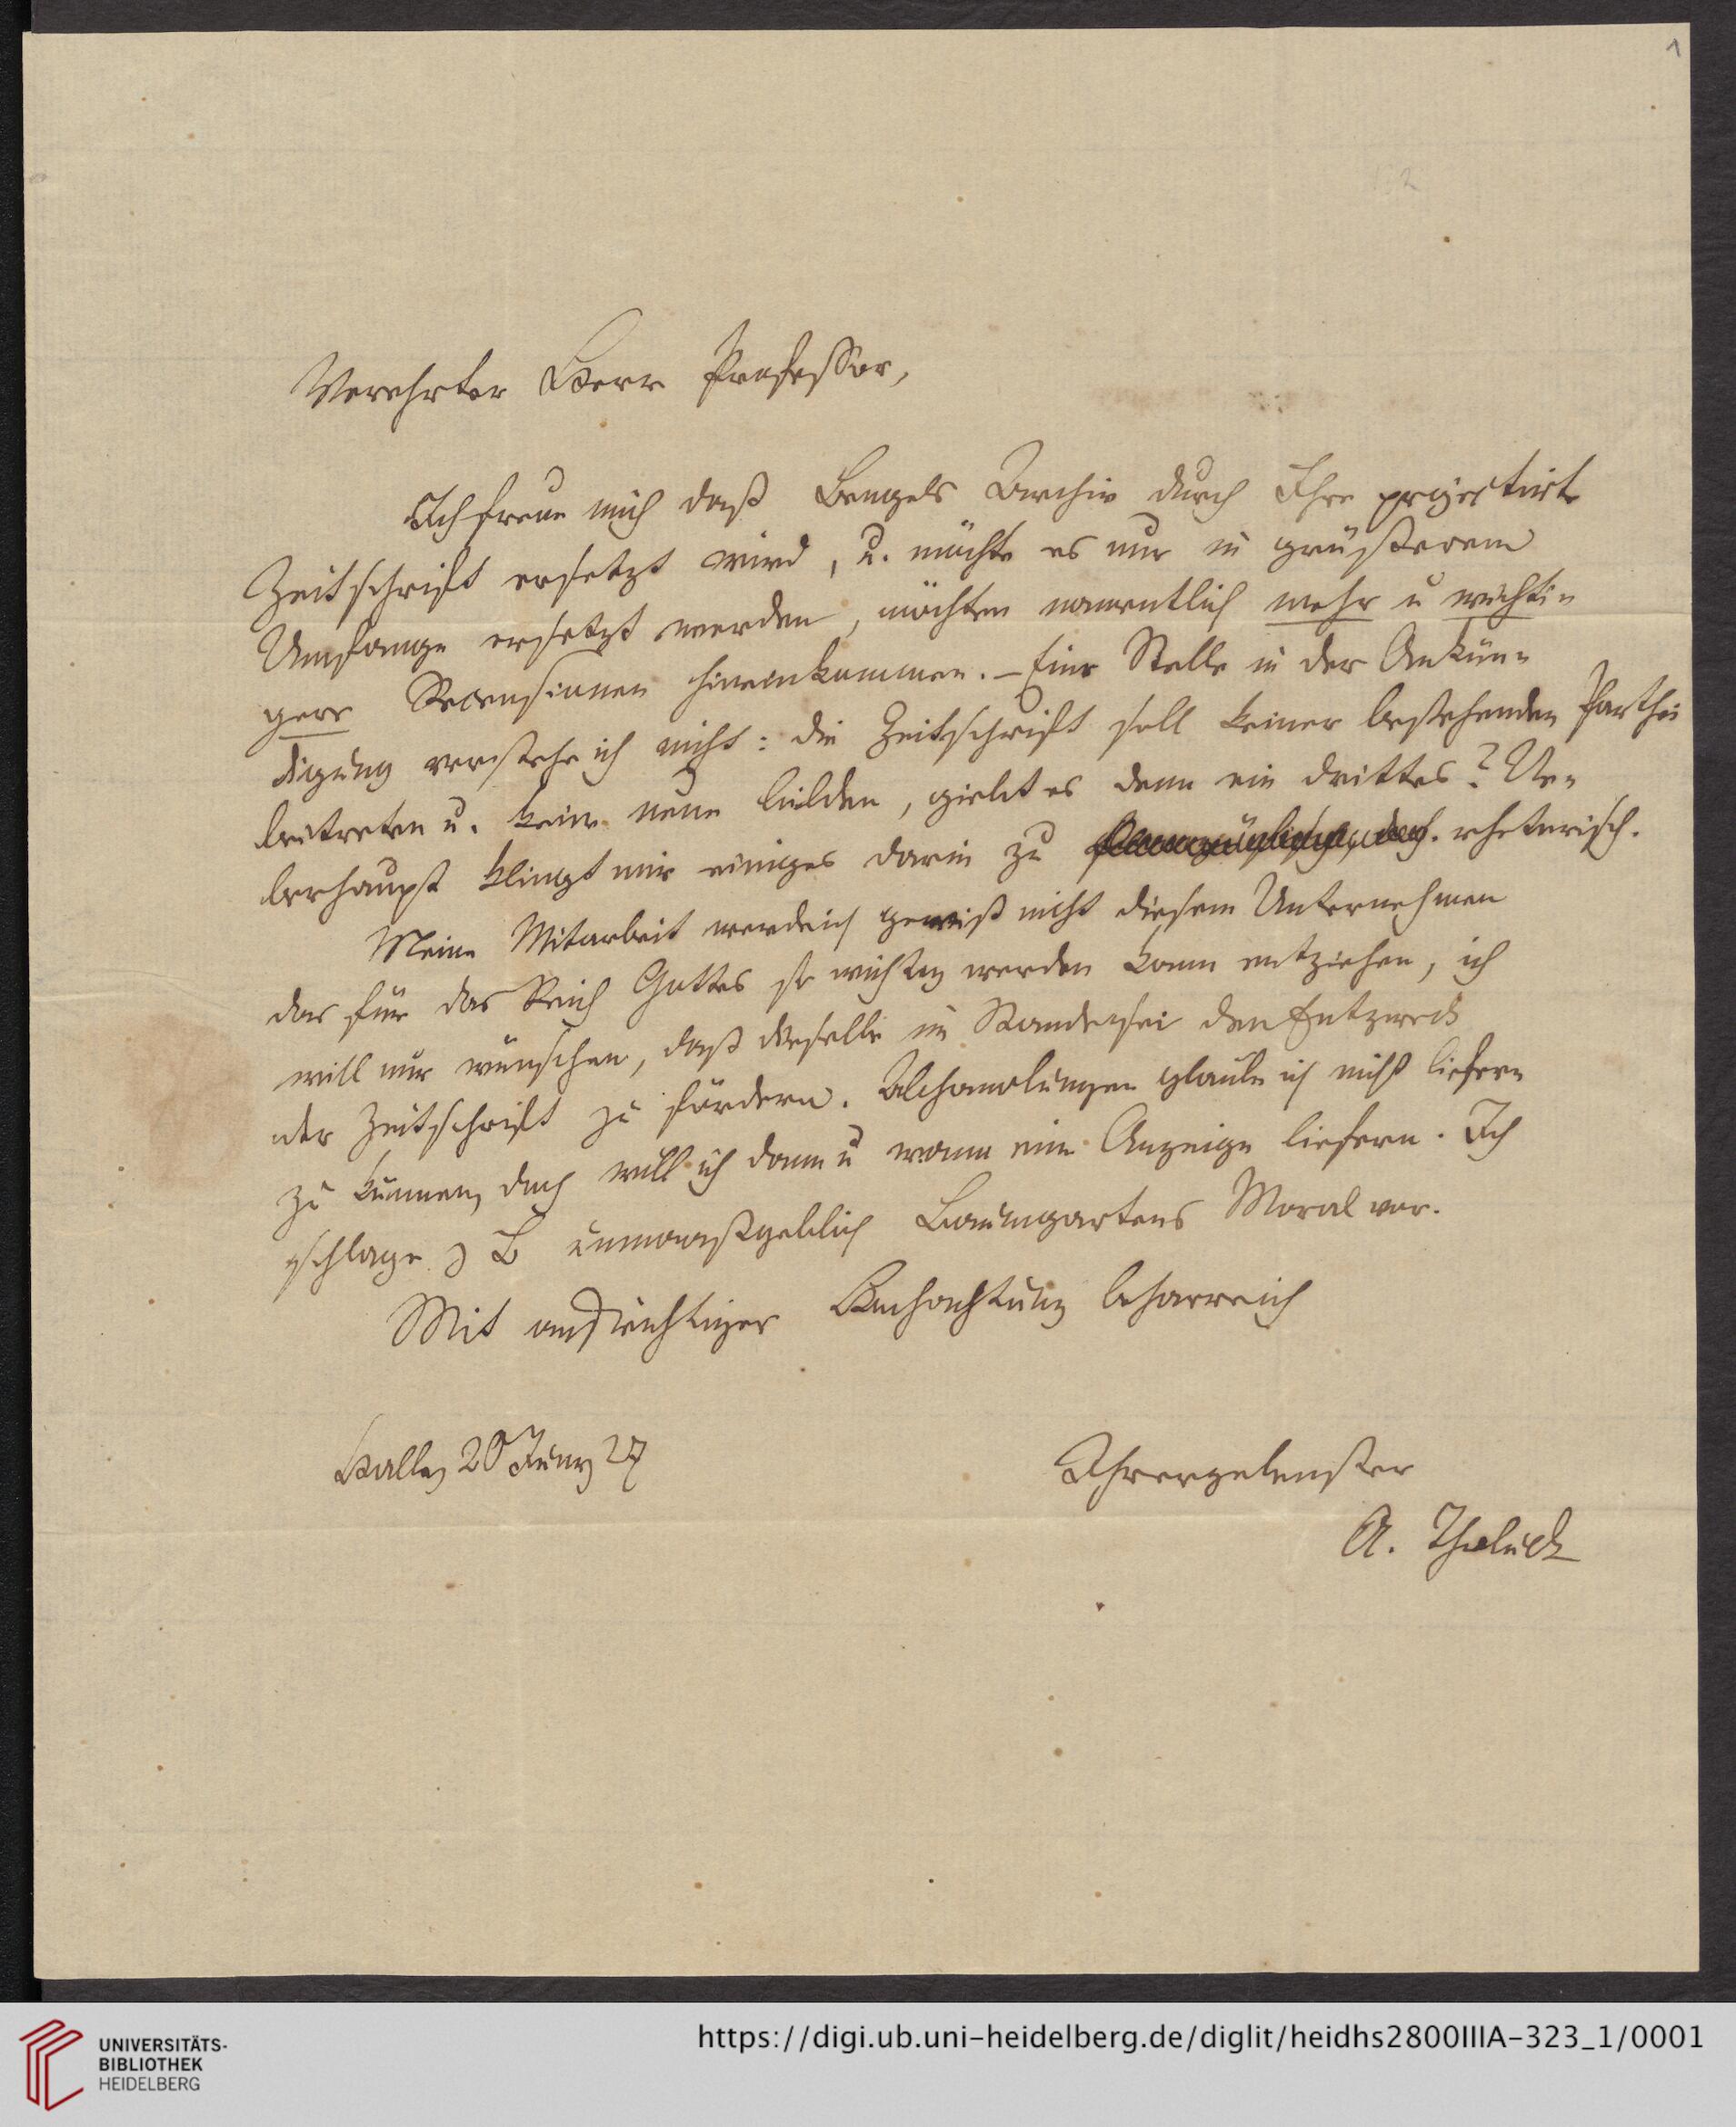 1
Verehrter Herr Professor,
Ich freue mich daß Bengels Archiv durch Ihre projectirte
Zeitschrift ersetzt wird, u. möchte es nur in größerem
Umfange ersetzt werden, möchten namentlich mehr u wichti-
gere Recensionen hineinkommen. – Eine Stelle in der Ankün-
digung verstehe ich nicht: die Zeitschrift soll keiner bestehenden Parthei
beitreten u. keine neue bilden, giebt es denn ein drittes? Ue-
berhaupt klingt mir einiges darin zu rhetorisch.
Meine Mitarbeit werde ich gewiß nicht diesem Unternehmen
das für das Reich Gottes so wichtig werden kann entziehen, ich
will nur wünschen, daß dieselbe im Stande sei den Entzweck
der Zeitschrift zu fördern. Abhandlungen glaube ich nicht liefern
zu können, doch will ich dann u wann eine Anzeige liefern. Ich
schlage z B unmaaßgeblich Baumgartens Moral vor.
Mit aufrichtiger Hochachtung beharre ich
Halle, 20 Juny 27
Ihr ergebenster
A. Tholuck
UNIVERSITÄTS-
BIBLIOTHEK
HEIDELBERG
https://digi.ub.uni-heidelberg.de/diglit/heidhs2800IIIA-323_1/0001